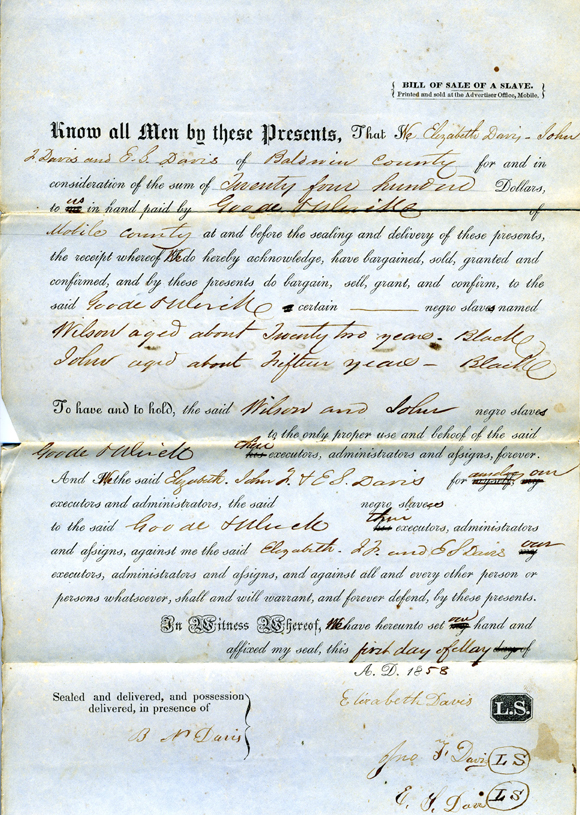 BILL OF SALE OF A SLAVE.
Printed and sold at the Advertiser Office, Mobile.
Know all Men by these Presents, That We Elizabeth Davis - John
F Davis and E. S. Davis of Baldwin County for and in
consideration of the sum of Twenty four hundred Dollars,
to us in hand paid by Goode & Ulrick of
Mobile County at and before the sealing and delivery of these presents,
the receipt whereof We do hereby acknowledge, have bargained, sold, granted and
confirmed, and by these presents do bargain, sell, grant, and confirm, to the
said Goode & Ulrick certain negro slaves named
Wilson aged about Twenty two years - Black
John aged about Fifteen years - Black
To have and to hold, the said Wilson and John negro slaves
to the only proper use and behoof of the said
Goode & Ulrick their executors, administrators and assigns, forever.
And We the said Elizabeth. John F. & E S Davis for our
executors and administrators, the said negro slaves
to the said Goode & Ulrick their executors, administrators
and assigns, against me the said Elizabeth - J F. and E S Davis our
executors, administrators and assigns, and against all and every other person or
persons whatsoever, shall and will warrant, and forever defend, by these presents.
In Witness Whereof, We have hereunto set our hand and
affixed my seal, this first day of May day of
A. D. 1858
Sealed and delivered, and possession
delivered, in presence of
B N Davis
Elizabeth Davis L.S.
Jno F. Davis L S
E. S. Davis L S